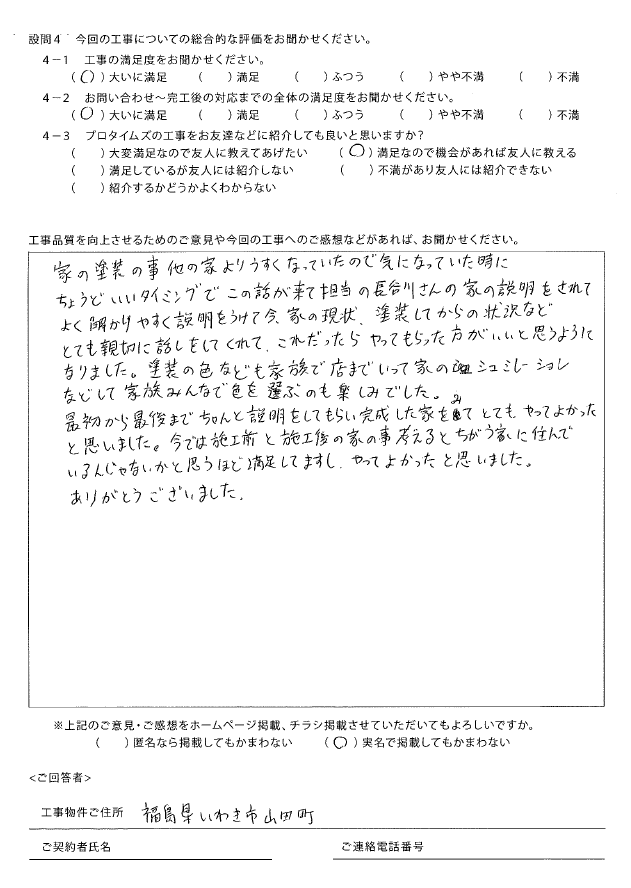 設問4 今回の工事についての総合的な評価をお聞かせください。
4-1 工事の満足度をお聞かせください。
(○)大いに満足 ( )満足 ( )ふつう ( )やや不満 ( )不満
4-2 お問い合わせ〜完工後の対応までの全体の満足度をお聞かせください。
(○)大いに満足 ( )満足 ( )ふつう ( )やや不満 ( )不満
4-3 プロタイムズの工事をお友達などに紹介しても良いと思いますか?
( )大変満足なので友人に教えてあげたい (○)満足なので機会があれば友人に教える
( )満足しているが友人には紹介しない ( )不満があり友人には紹介できない
( )紹介するかどうかよくわからない
工事品質を向上させるためのご意見や今回の工事へのご感想などがあれば、お聞かせください。
家の塗装の事他の家よりうすくなっていたので気になっていた時に
ちょうどいいタイミングでこの話が来て担当の長谷川さんの家の説明をされて
よく解かりやすく説明をうけて今、家の現状、塗装してからの状況など
とても親切に話しをしてくれて、これだったらやってもらった方がいいと思うように
なりました。塗装の色なども家族で店までいって家のシュミレーショレ
などして家族みんなで色を選ぶのも楽しみでした。
最初から最後までちゃんと説明をしてもらい完成した家をみてとても、やってよかった
と思いました。今では施工前と施工後の家の事考えるとちがう家に住んで
いるんじゃないかと思うほど満足してますし、やってよかったと思いました。
ありがとうございました.
※上記のご意見・ご感想をホームページ掲載、チラシ掲載させていただいてもよろしいですか。
( )匿名なら掲載してもかまわない (○)実名で掲載してもかまわない
<ご回答者>
工事物件ご住所 福島県いわき市山田町
ご契約者氏名 ご連絡電話番号